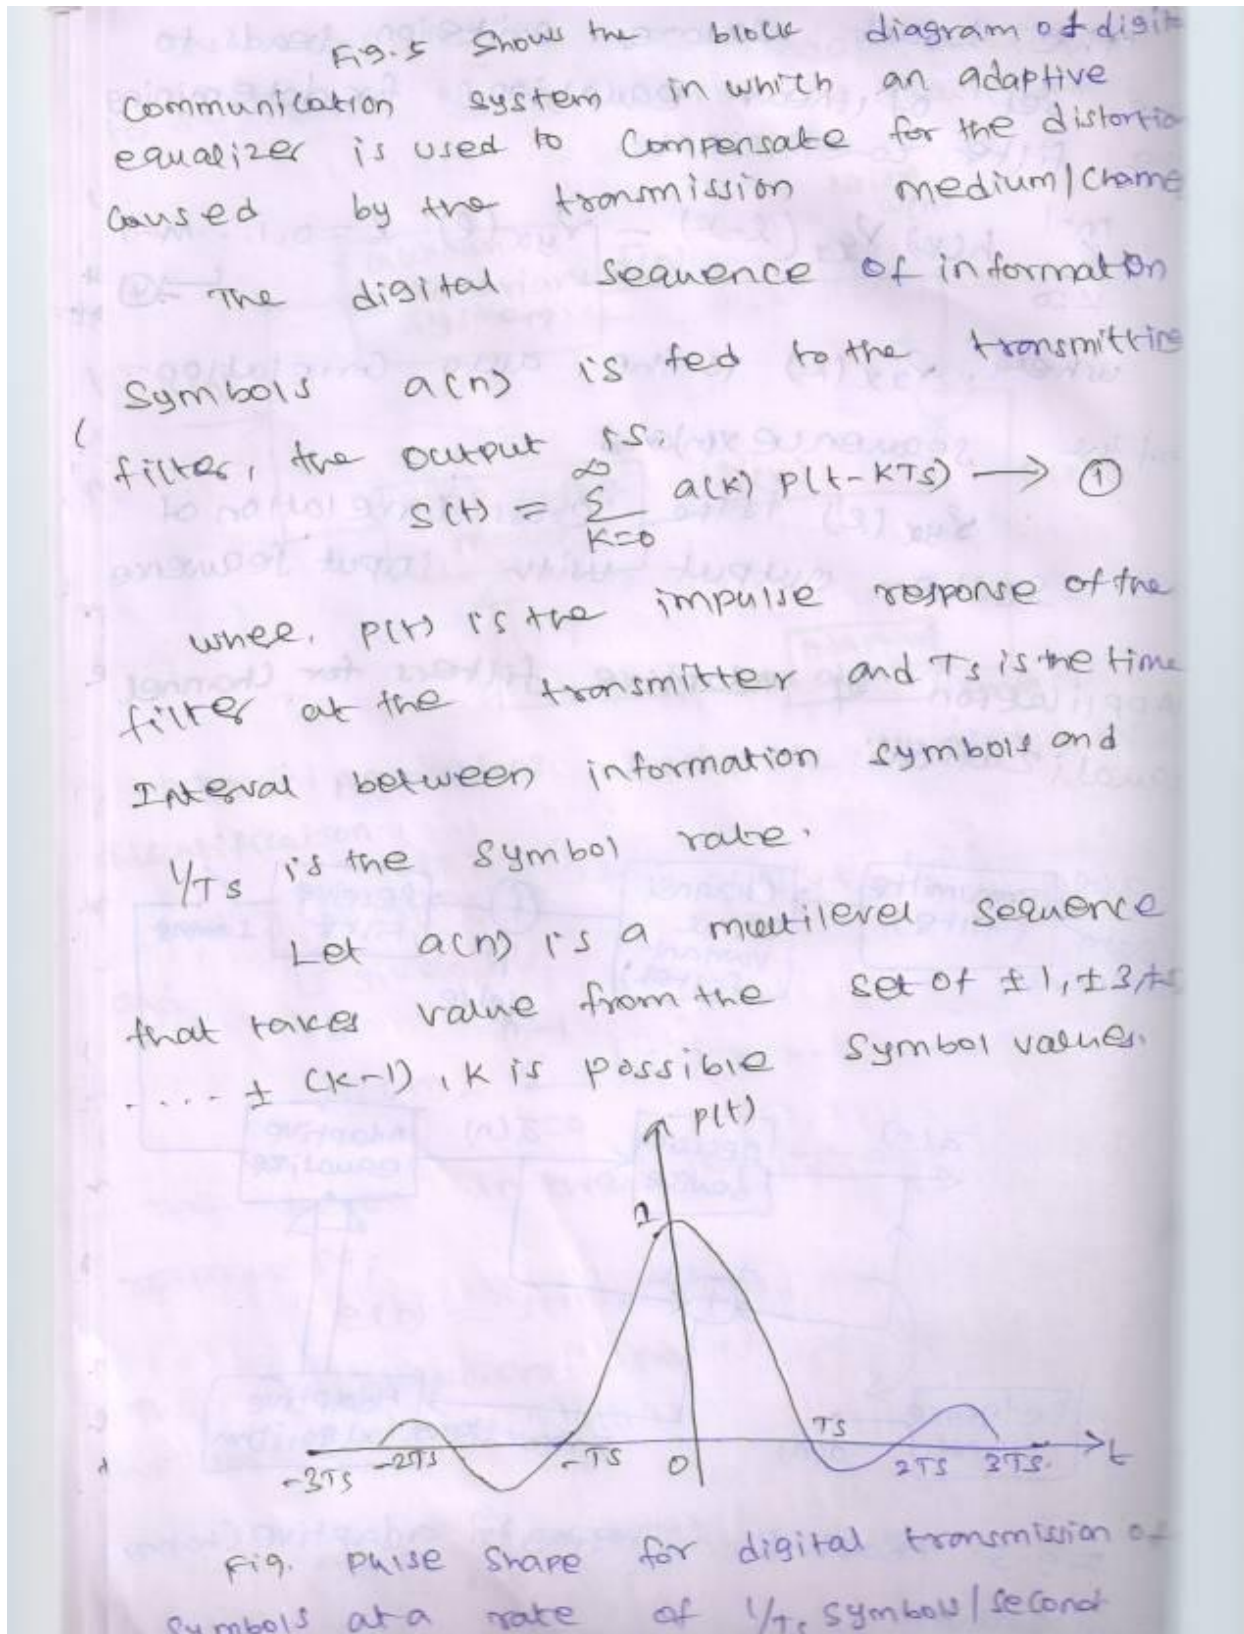 Fig.5 Shows the block diagram of digit
Communication system in which an adaptive
equalizer is used to Compensate for the distortio
Caused by the transmission medium/channe
The digital sequence of information
Symbols a(n) is fed to the transmitting
filter, the output is.
S(t) = ∞ Σ K=0 a(k) p(t-KTS) → ①
whee, P(t) is the impulse response of the
filter at the transmitter and Ts is the time
Interval between information symbols and
1/TS is the Symbol rate.
Let a(n) is a multilevel sequence
that takes value from the set of ±1, ±3,
..... ± (k-1), K is possible Symbol values.
p(t)
1
-3TS -2TS -TS 0 TS 2TS 3TS. t
Fig. Pulse Shape for digital transmission of
Symbols at a rate of 1/Ts Symbols/second